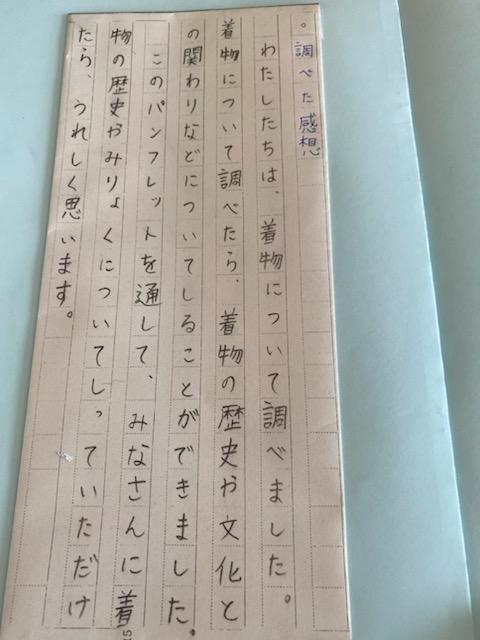 。調べた感想
わたしたちは、着物について調べました。
着物について調べたら、着物の歴史や文化と
の関わりなどについてしることができました。
このパンフレットを通して、みなさんに着
物の歴史やみりょくについてしっていただけ
たら、うれしく思います。